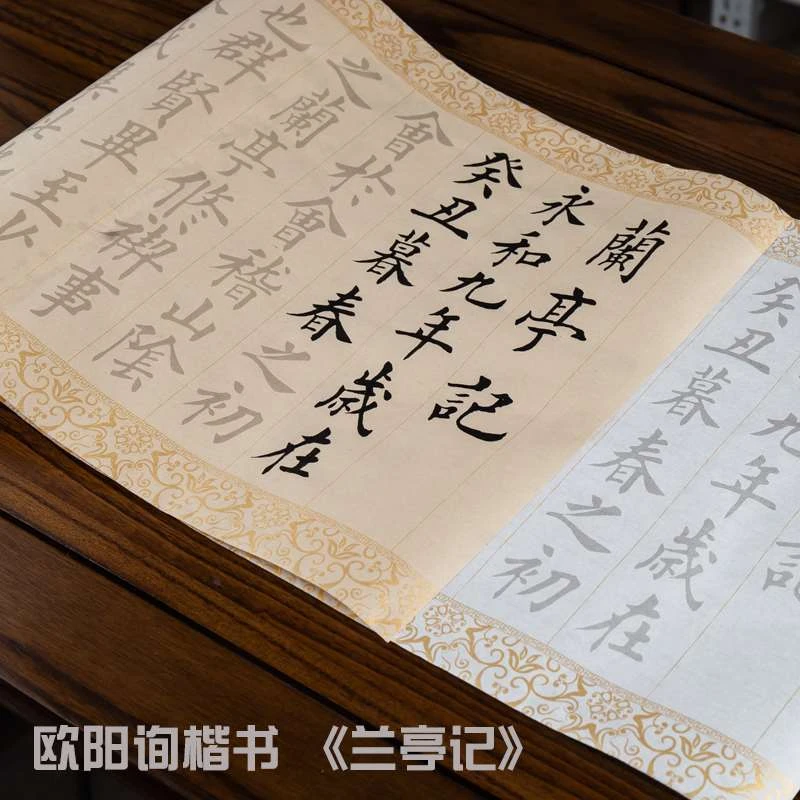 蘭亭記
永和九年歲在
癸丑暮春之初
會於會稽山陰
之蘭亭脩禊事
也群賢畢至少
記
九年歲在
癸丑暮春之初
欧阳询楷书 《兰亭记》